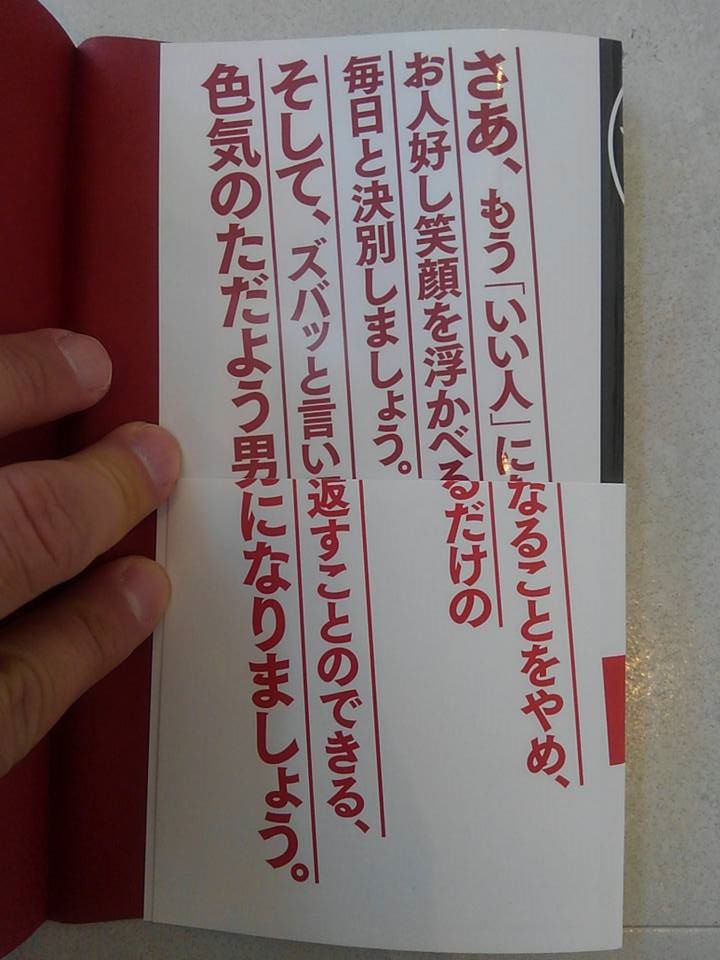 さあ、もう「いい人」になることをやめ、
お人好し笑顔を浮かべるだけの
毎日と決別しましょう。
そして、ズバッと言い返すことのできる、
色気のただよう男になりましょう。